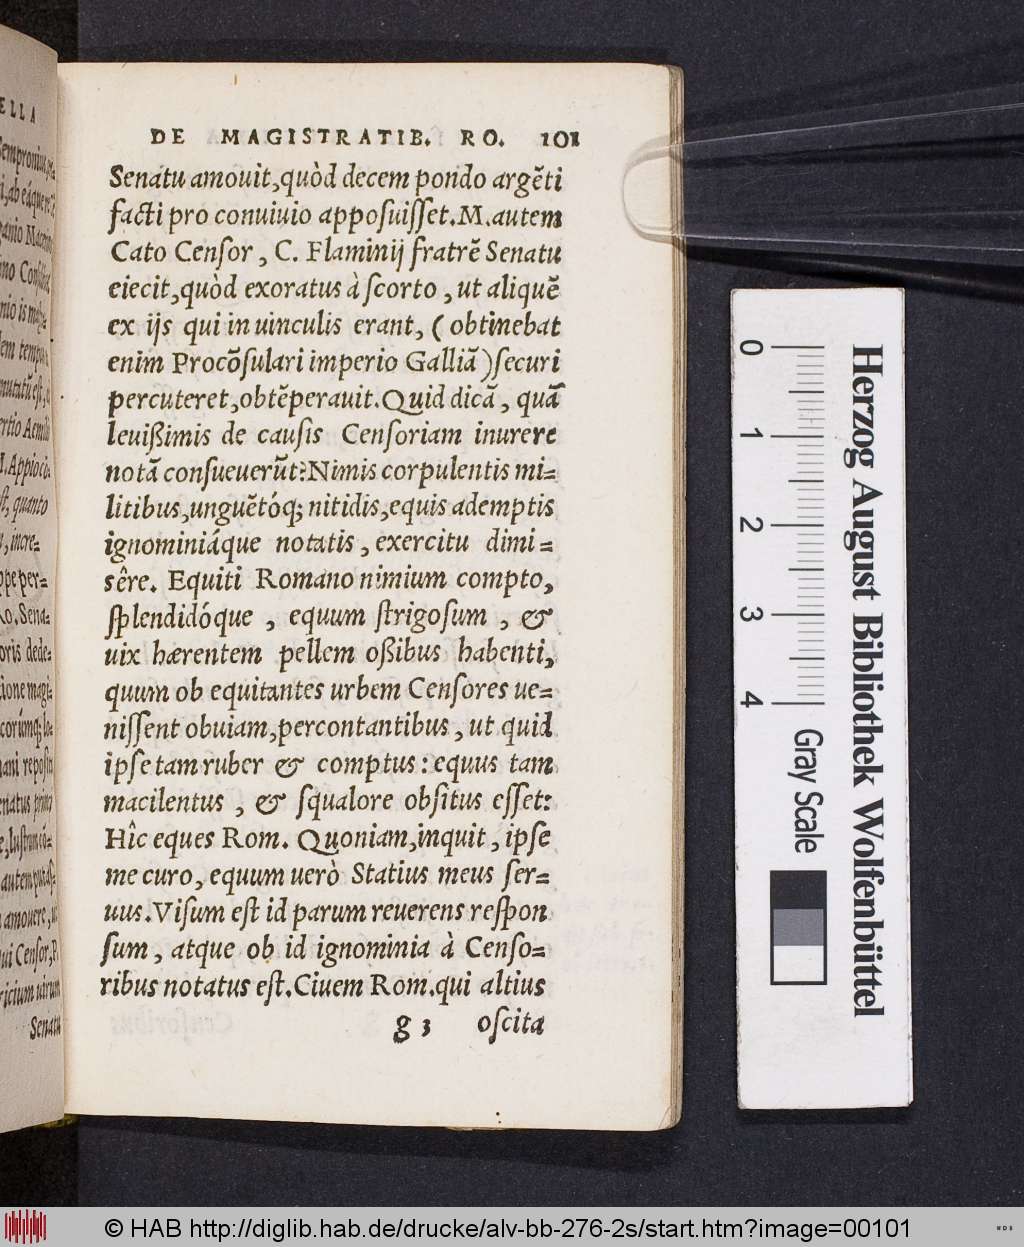 DE MAGISTRATIB. RO. 101
Senatu amouit,quòd decem pondo argẽti
facti pro conuiuio apposuisset.M.autem
Cato Censor, C. Flaminij fratrẽ Senatu
eiecit,quòd exoratus à scorto, ut aliquẽ
ex ijs qui in uinculis erant, (obtinebat
enim Procõsulari imperio Galliã)securi
percuteret,obtẽperauit.Quid dicã, quã
leuißimis de causis Censoriam inurere
notã consueuerũt?Nimis corpulentis mi=
litibus,unguẽtóq; nitidis,equis ademptis
ignominiáque notatis, exercitu dimi=
sêre. Equiti Romano nimium compto,
splendidóque, equum strigosum, &
uix hærentem pellem oßibus habenti,
quum ob equitantes urbem Censores ue=
nissent obuiam,percontantibus, ut quid
ipse tam ruber & comptus: equus tam
macilentus, & squalore obsitus esset:
Hîc eques Rom. Quoniam,inquit, ipse
me curo, equum uerò Statius meus ser=
uus.Visum est id parum reuerens respon
sum, atque ob id ignominia à Censo=
ribus notatus est.Ciuem Rom.qui altius
g 3 oscita
ELLA
quanto
incre=
ppe per=
Ro. Sena=
oris dede=
tione magi=
ani reposit
autem
amouere
ui Censor, P.
Senatu
0 1 2 3 4
Gray Scale
Herzog August Bibliothek Wolfenbüttel
© HAB http://diglib.hab.de/drucke/alv-bb-276-2s/start.htm?image=00101